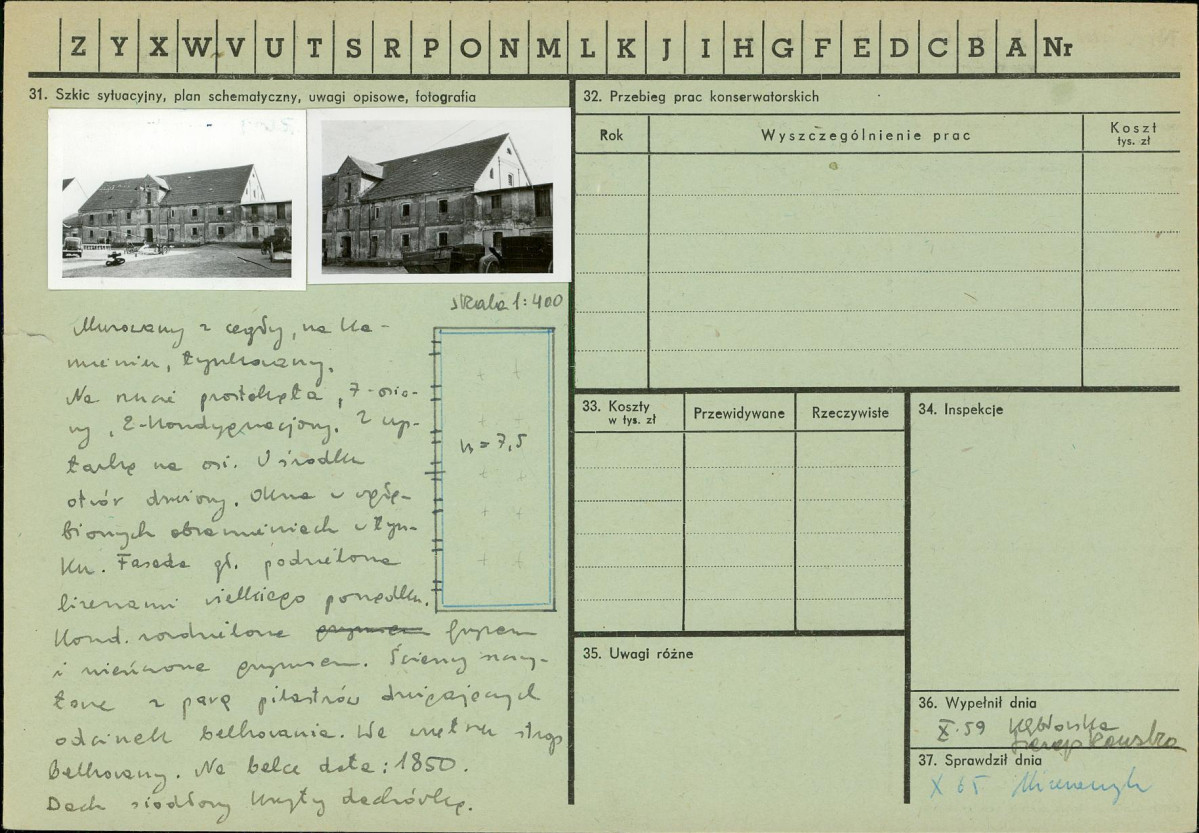 Z Y X W V U T S R P O N M L K J I H G F E D C B A Nr
31. Szkic sytuacyjny, plan schematyczny, uwagi opisowe, fotografia
skala 1:400
Murowany z cegły, na ka-
mieniu, tynkowany.
Na rzucie prostokąta, 7-osio-
wy, 2-kondygnacjowy. Z wy-
stawką na osi. W środku
otwór drzwiowy. Okna w wgłę-
bionych obramieniach w tyn-
ku. Fasada gł. podzielona
lizenami wielkiego porządku.
Kond. rozdzielone gzymsem fryzem
i wieńczone gzymsem. Ściany szczy-
towe z parą pilastrów dźwigających
odcinek belkowania. We wnętrzu strop
belkowany. Na belce data: 1850.
Dach siodłowy kryty dachówką.
h = 7,5
32. Przebieg prac konserwatorskich
Rok
Wyszczególnienie prac
Koszt
tys. zł
33. Koszty
w tys. zł
Przewidywane
Rzeczywiste
34. Inspekcje
35. Uwagi różne
36. Wypełnił dnia
X.59 Kębłowska
37. Sprawdził dnia
X 65